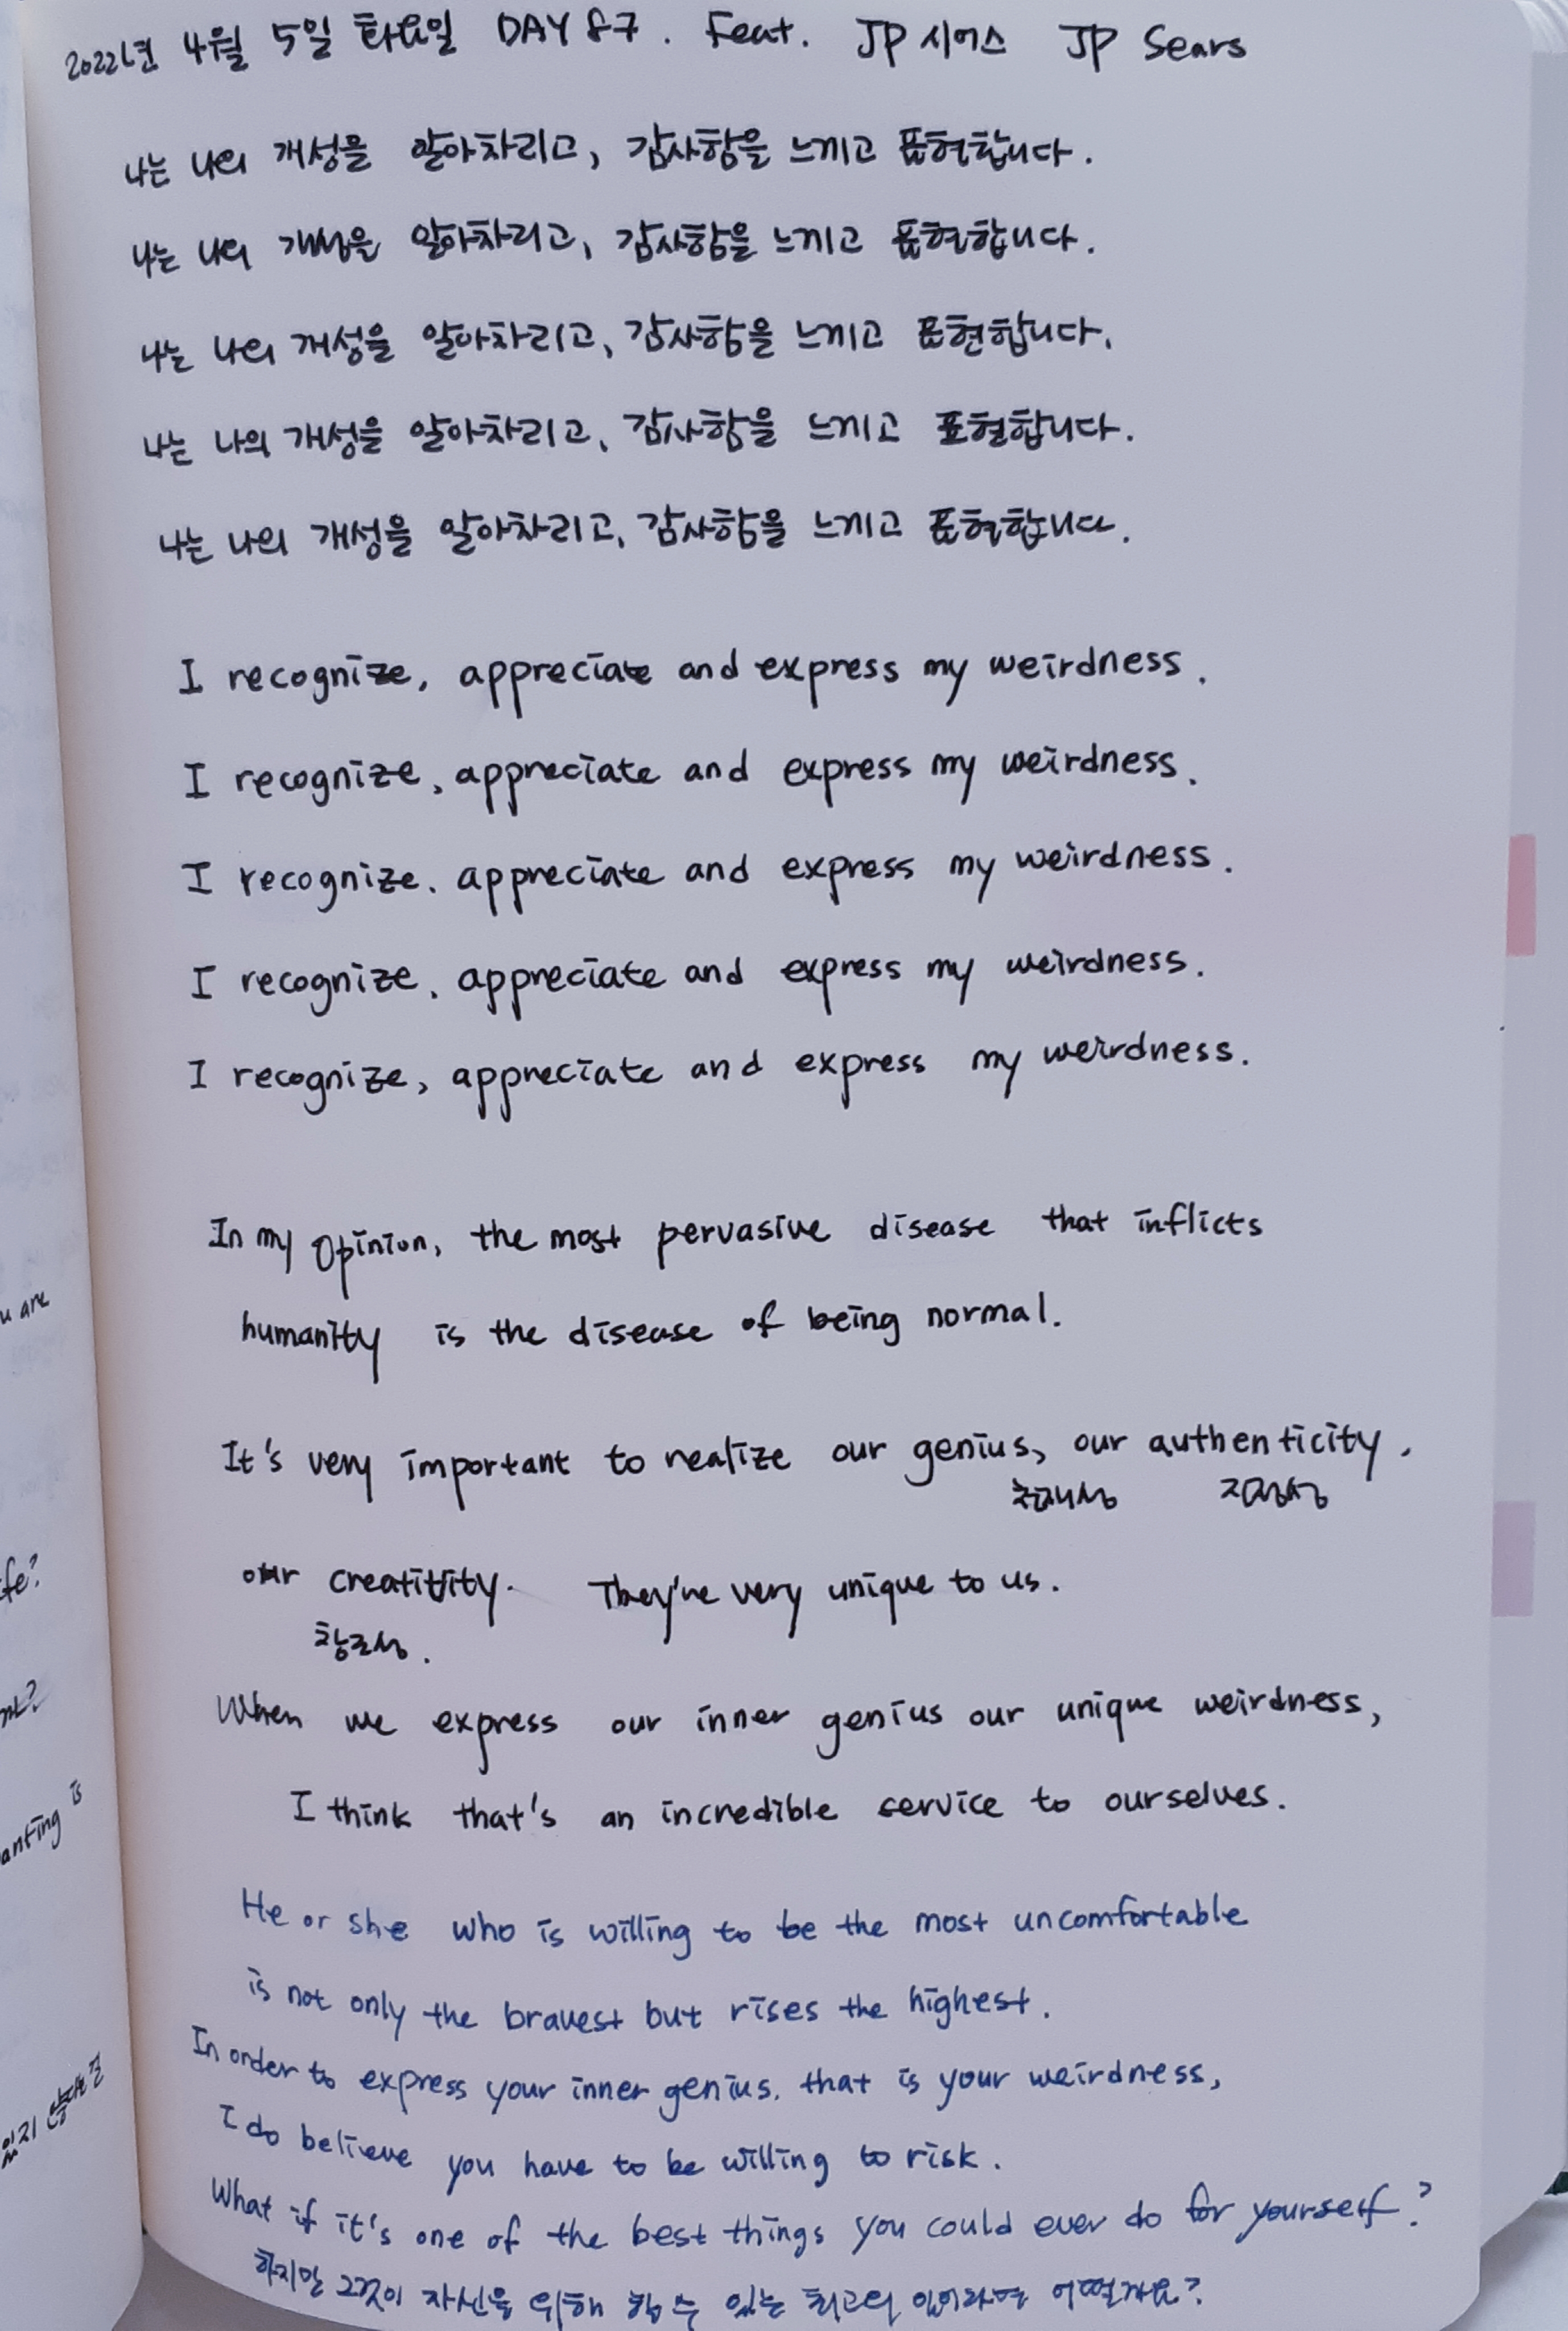 2022년 4월 5일 화요일 DAY 87. Feat. JP 시어스 JP Sears
나는 나의 개성을 알아차리고, 감사함을 느끼고 표현합니다.
나는 나의 개성을 알아차리고, 감사함을 느끼고 표현합니다.
나는 나의 개성을 알아차리고, 감사함을 느끼고 표현합니다.
나는 나의 개성을 알아차리고, 감사함을 느끼고 표현합니다.
나는 나의 개성을 알아차리고, 감사함을 느끼고 표현합니다.
I recognize, appreciate and express my weirdness.
I recognize, appreciate and express my weirdness.
I recognize. appreciate and express my weirdness.
I recognize, appreciate and express my weirdness.
I recognize, appreciate and express my weirdness.
In my opinion, the most pervasive disease that inflicts
humanity is the disease of being normal.
It's very important to realize our genius, our authenticity.
천재성 진정성
our creativity. They're very unique to us.
창조성.
When we express our inner genius our unique weirdness,
I think that's an incredible service to ourselves.
He or she who is willing to be the most uncomfortable
is not only the bravest but rises the highest.
In order to express your inner genius. that is your weirdness,
I do believe you have to be willing to risk.
What if it's one of the best things you could ever do for yourself?
하지만 그것이 자신을 위해 할 수 있는 최고의 일이라면 어떨까요?
u are
fe?
anting is